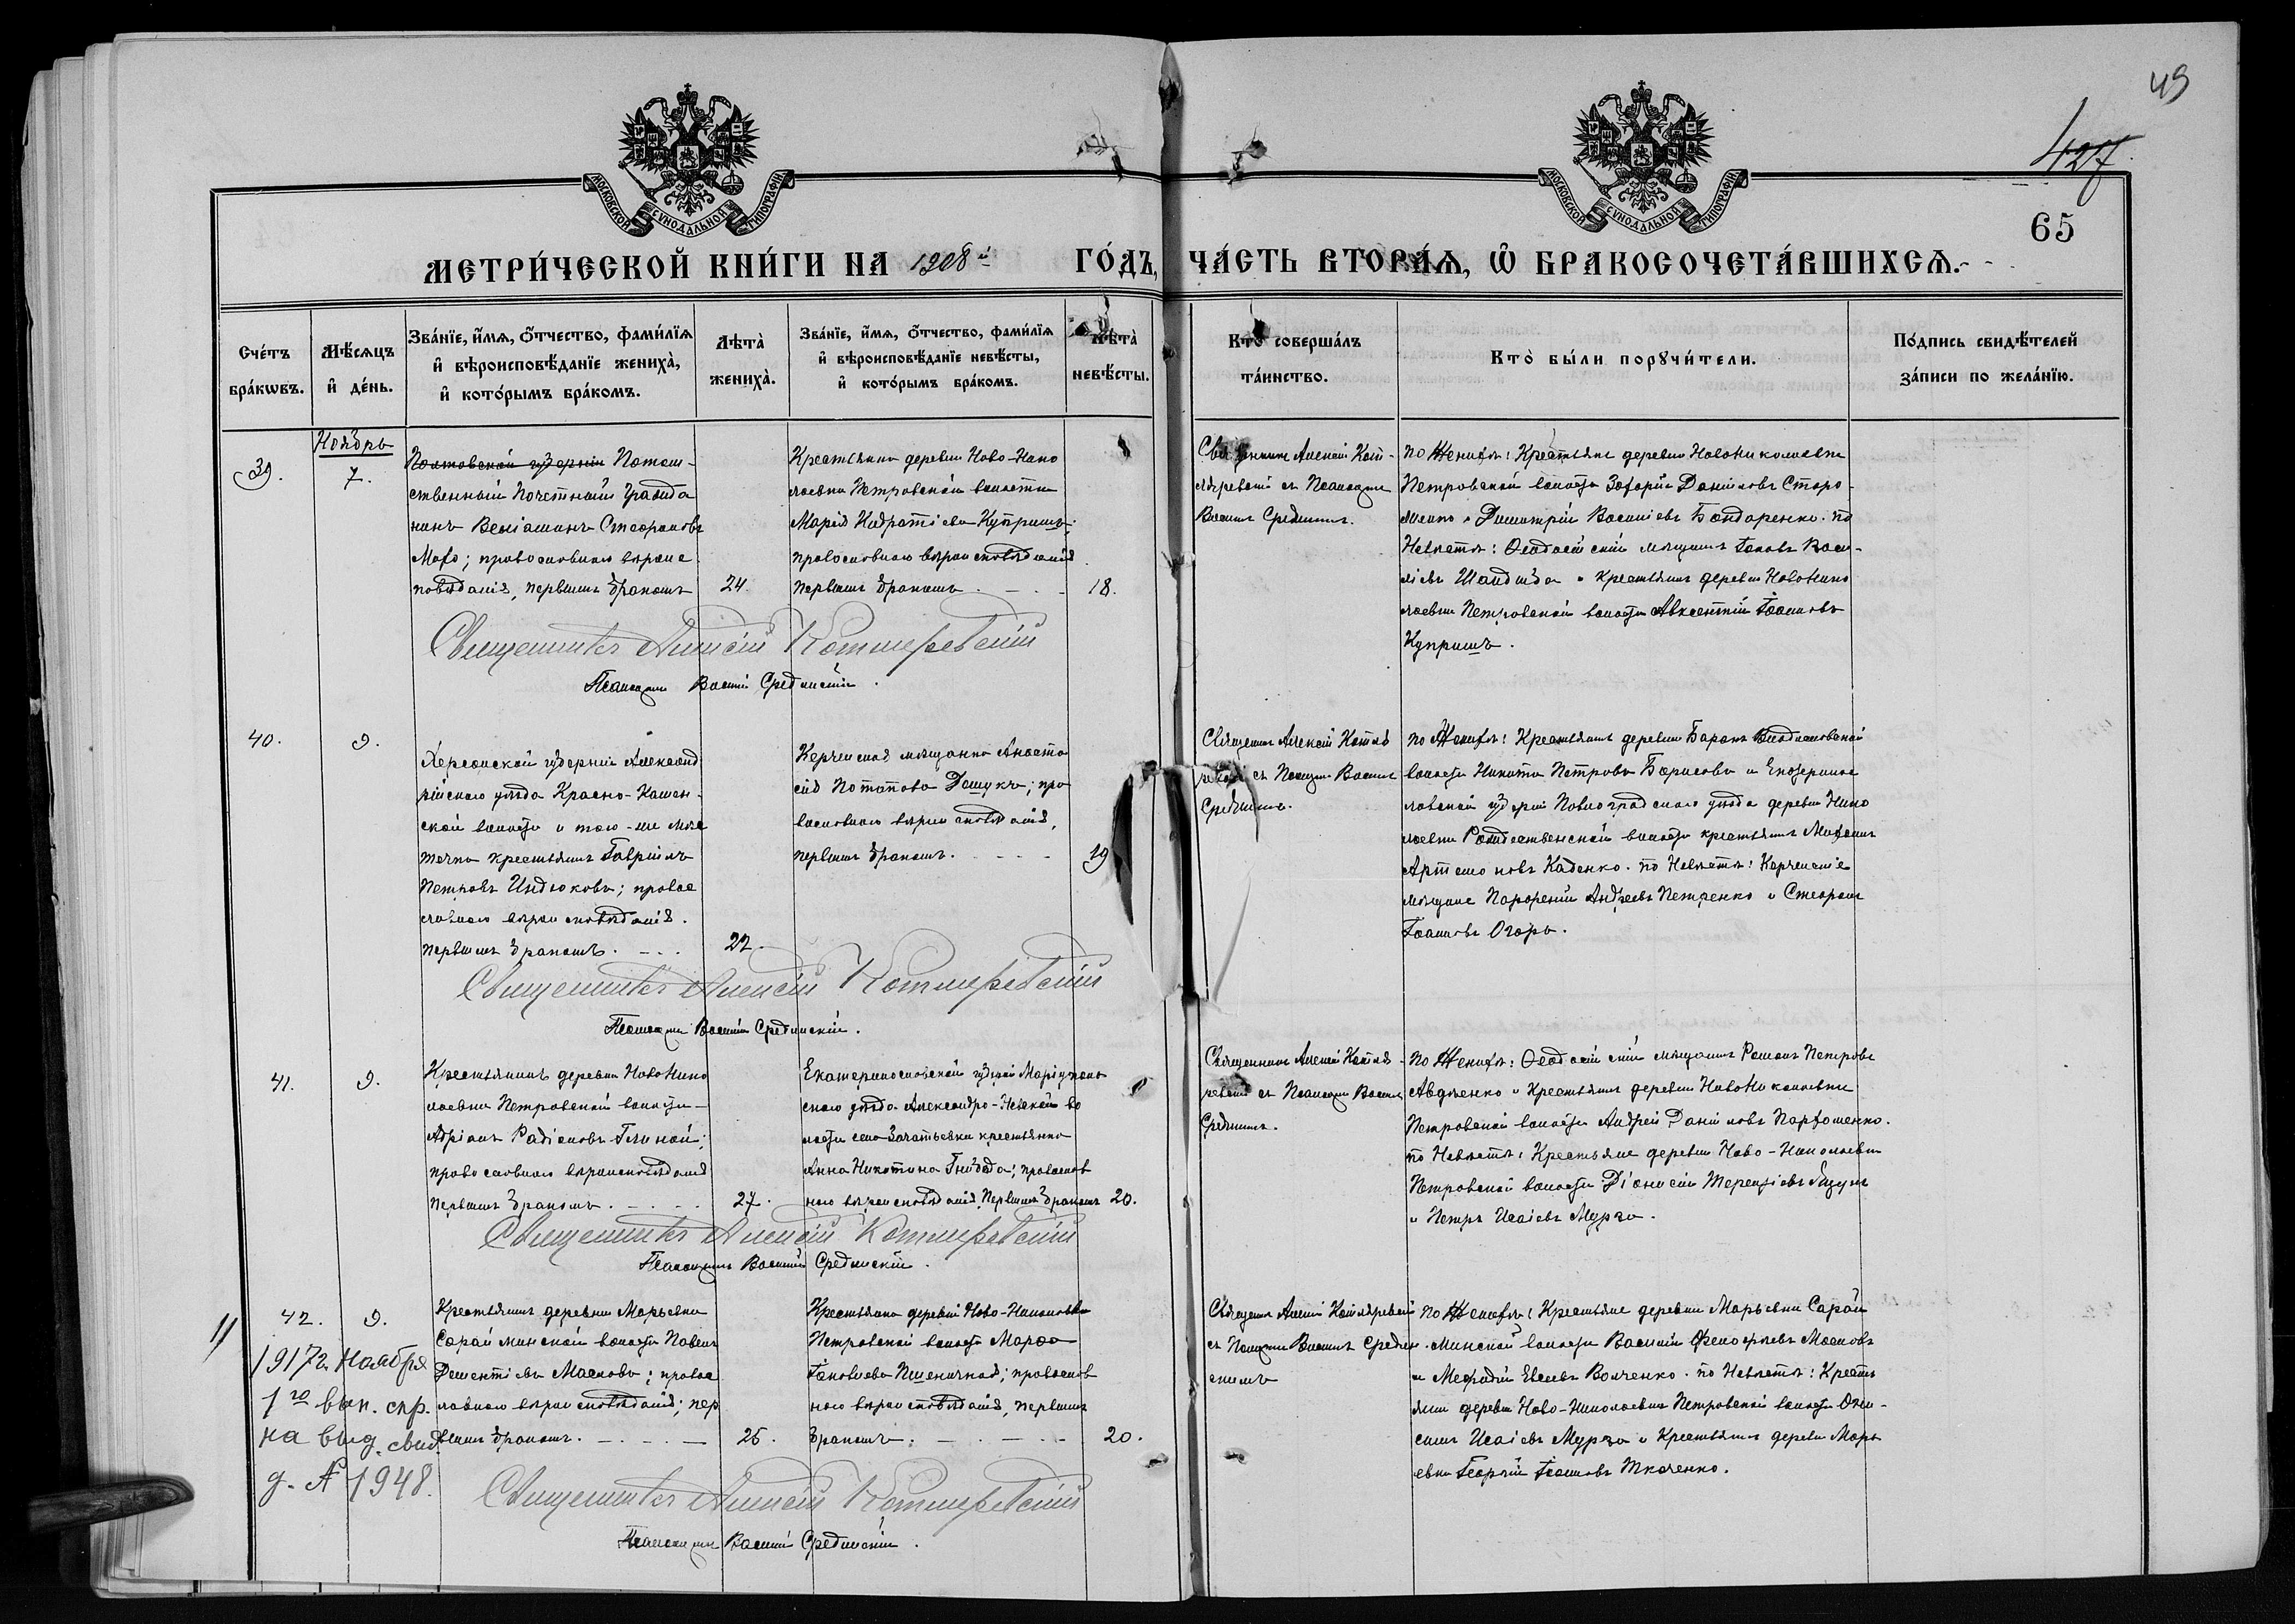 49
427
65
МОСКОВСКОЙ СѴНОДАЛЬНОЙ ТИПОГРАФІИ
МОСКОВСКОЙ СѴНОДАЛЬНОЙ ТИПОГРАФІИ
МЕТРИ́ЧЕСКОЙ КНИ́ГИ НА 1908й ГО́ДЪ, ЧА́СТЬ ВТОРА́Я, Ѡ БРАКОСОЧЕТА́ВШИХСЯ.
Сче́тъ бра́кѡвъ.
Мѣ́сяцъ и҆ де́нь.
Зва́нїе, и҆́мя, о҆́тчество, фами́лїя
и҆ вѣроисповѣ́данїе жениха̀,
и҆ кото́рымъ бра́комъ.
Лѣта̀ жениха̀.
Зва́нїе, и҆́мя, о҆́тчество, фами́лїя
и҆ вѣроисповѣ́данїе невѣ́сты,
и҆ кото́рымъ бра́комъ.
Лѣта̀ невѣ́сты.
Кто̀ соверша́лъ та́инство.
Кто̀ бы́ли порꙋчи́тели.
По́дпись свидѣ́телей
за́писи по жела́нїю.
Ноябрь
39.
7.
Полтавской губерніи Потом-
ственный Почетный Гражда
нинъ Веніаминъ Стефановъ
Махо; православнаго вѣроис
повѣданія, первымъ бракомъ
24.
Крестьянка деревни Ново-Нико
лаевки Петровской волости
Марія Кодратіева Купришъ;
православнаго вѣроисповѣданія
первымъ бракомъ
18.
Священникъ Алексій Кот-
ляревскій съ Псаломщ.
Василіемъ Срединск.
По Женихѣ: Крестьяне деревни Новониколаевки
Петровской волости Захарій Даніиловъ Сторо-
женко и Димитрій Василіевъ Бондаренко. по
Невѣстѣ: Ѳеодосійскій мѣщанинъ Іаковъ Васи-
ліевъ и крестьянинъ деревни Новонико
лаевки Петровской волости Авксентій Іоанновъ
Купришъ.
Священникъ Алексій Котляревскій
Псаломщикъ Василій Срединскій.
40.
9.
Херсонской губерніи Александ
рійскаго уѣзда Красно-Камен-
ской волости и того-же мѣс
течка крестьянинъ Гавріилъ
Петровъ Индюковъ; правос
лавнаго вѣроисповѣданія.
первымъ бракомъ.
22.
Керченская мѣщанка Анаста
сія Потапова Дощукъ; пра
вославнаго вѣроисповѣданія,
первымъ бракомъ.
19
Священникъ Алексій Котля
ревскій съ Псаломщ. Василіемъ
Срединск.
По Женихѣ: Крестьянинъ деревни Баракъ Владиславовской
волости Никита Петровъ Борисовъ и Екатерино
славской губерніи Павлоградскаго уѣзда деревни Нико
лаевки Рождественской волости крестьянинъ Михаилъ
Артамоновъ Каденко. по Невѣстѣ: Керченскіе
мѣщане Парфеній Андреевъ Петренко и Стефанъ
Іоанновъ Огарь.
Священникъ Алексій Котляревскій
Псаломщикъ Василій Срединскій.
41.
9.
Крестьянинъ деревни Новонико
лаевки Петровской волости
Адріанъ Радіоновъ Глиной;
православнаго вѣроисповѣданія
первымъ бракомъ.
27.
Екатеринославской губерніи Маріуполь
скаго уѣзда Александро-Невской во
лости села Зачатьевки крестьянка
Анна Никитина Гнѣдода; православ
наго вѣроисповѣданія, Первымъ бракомъ
20.
Священникъ Алексій Котля-
ревскій съ Псаломщ. Василіемъ
Срединск.
По Женихѣ: Ѳеодосійскій мѣщанинъ Романъ Петровъ
Авдѣенко и Крестьянинъ деревни Новониколаевки
Петровской волости Андрей Даніиловъ Пархоменко.
по Невѣстѣ: Крестьяне деревни Ново-Николаевки
Петровской волости Діонисій Терентіевъ
и Петръ Исаіевъ Мурза.
Священникъ Алексій Котляревскій
Псаломщикъ Василій Срединскій.
42.
9.
Крестьянинъ деревни Марьевки
Сарайминской волости Павелъ
Дементіевъ Масловъ; правос
лавнаго вѣроисповѣданія; пер
вымъ бракомъ.
25.
Крестьянка деревни Ново-Николаевки
Петровской волости Марѳа
Іаковлева Пшеничная; православ
наго вѣроисповѣданія, первымъ
бракомъ.
20.
Священникъ Алексій Котляревскій
съ Псаломщ. Василіемъ Средин
скимъ
По Женихѣ: Крестьяне деревни Марьевки Сарай
минской волости Василій Маоловъ
и Меѳодій Евсеевъ Волченко. по Невѣстѣ: Кресть
яне деревни Ново-Николаевки Петровской волости Они-
симъ Исаіевъ Мурза и Крестьянинъ деревни Марь
евки Георгій Іоанновъ Ткаченко.
1917г. Ноября
1го вып. спр.
на выд. свид.
д. № 1948.
Священникъ Алексій Котляревскій
Псаломщикъ Василій Срединскій.